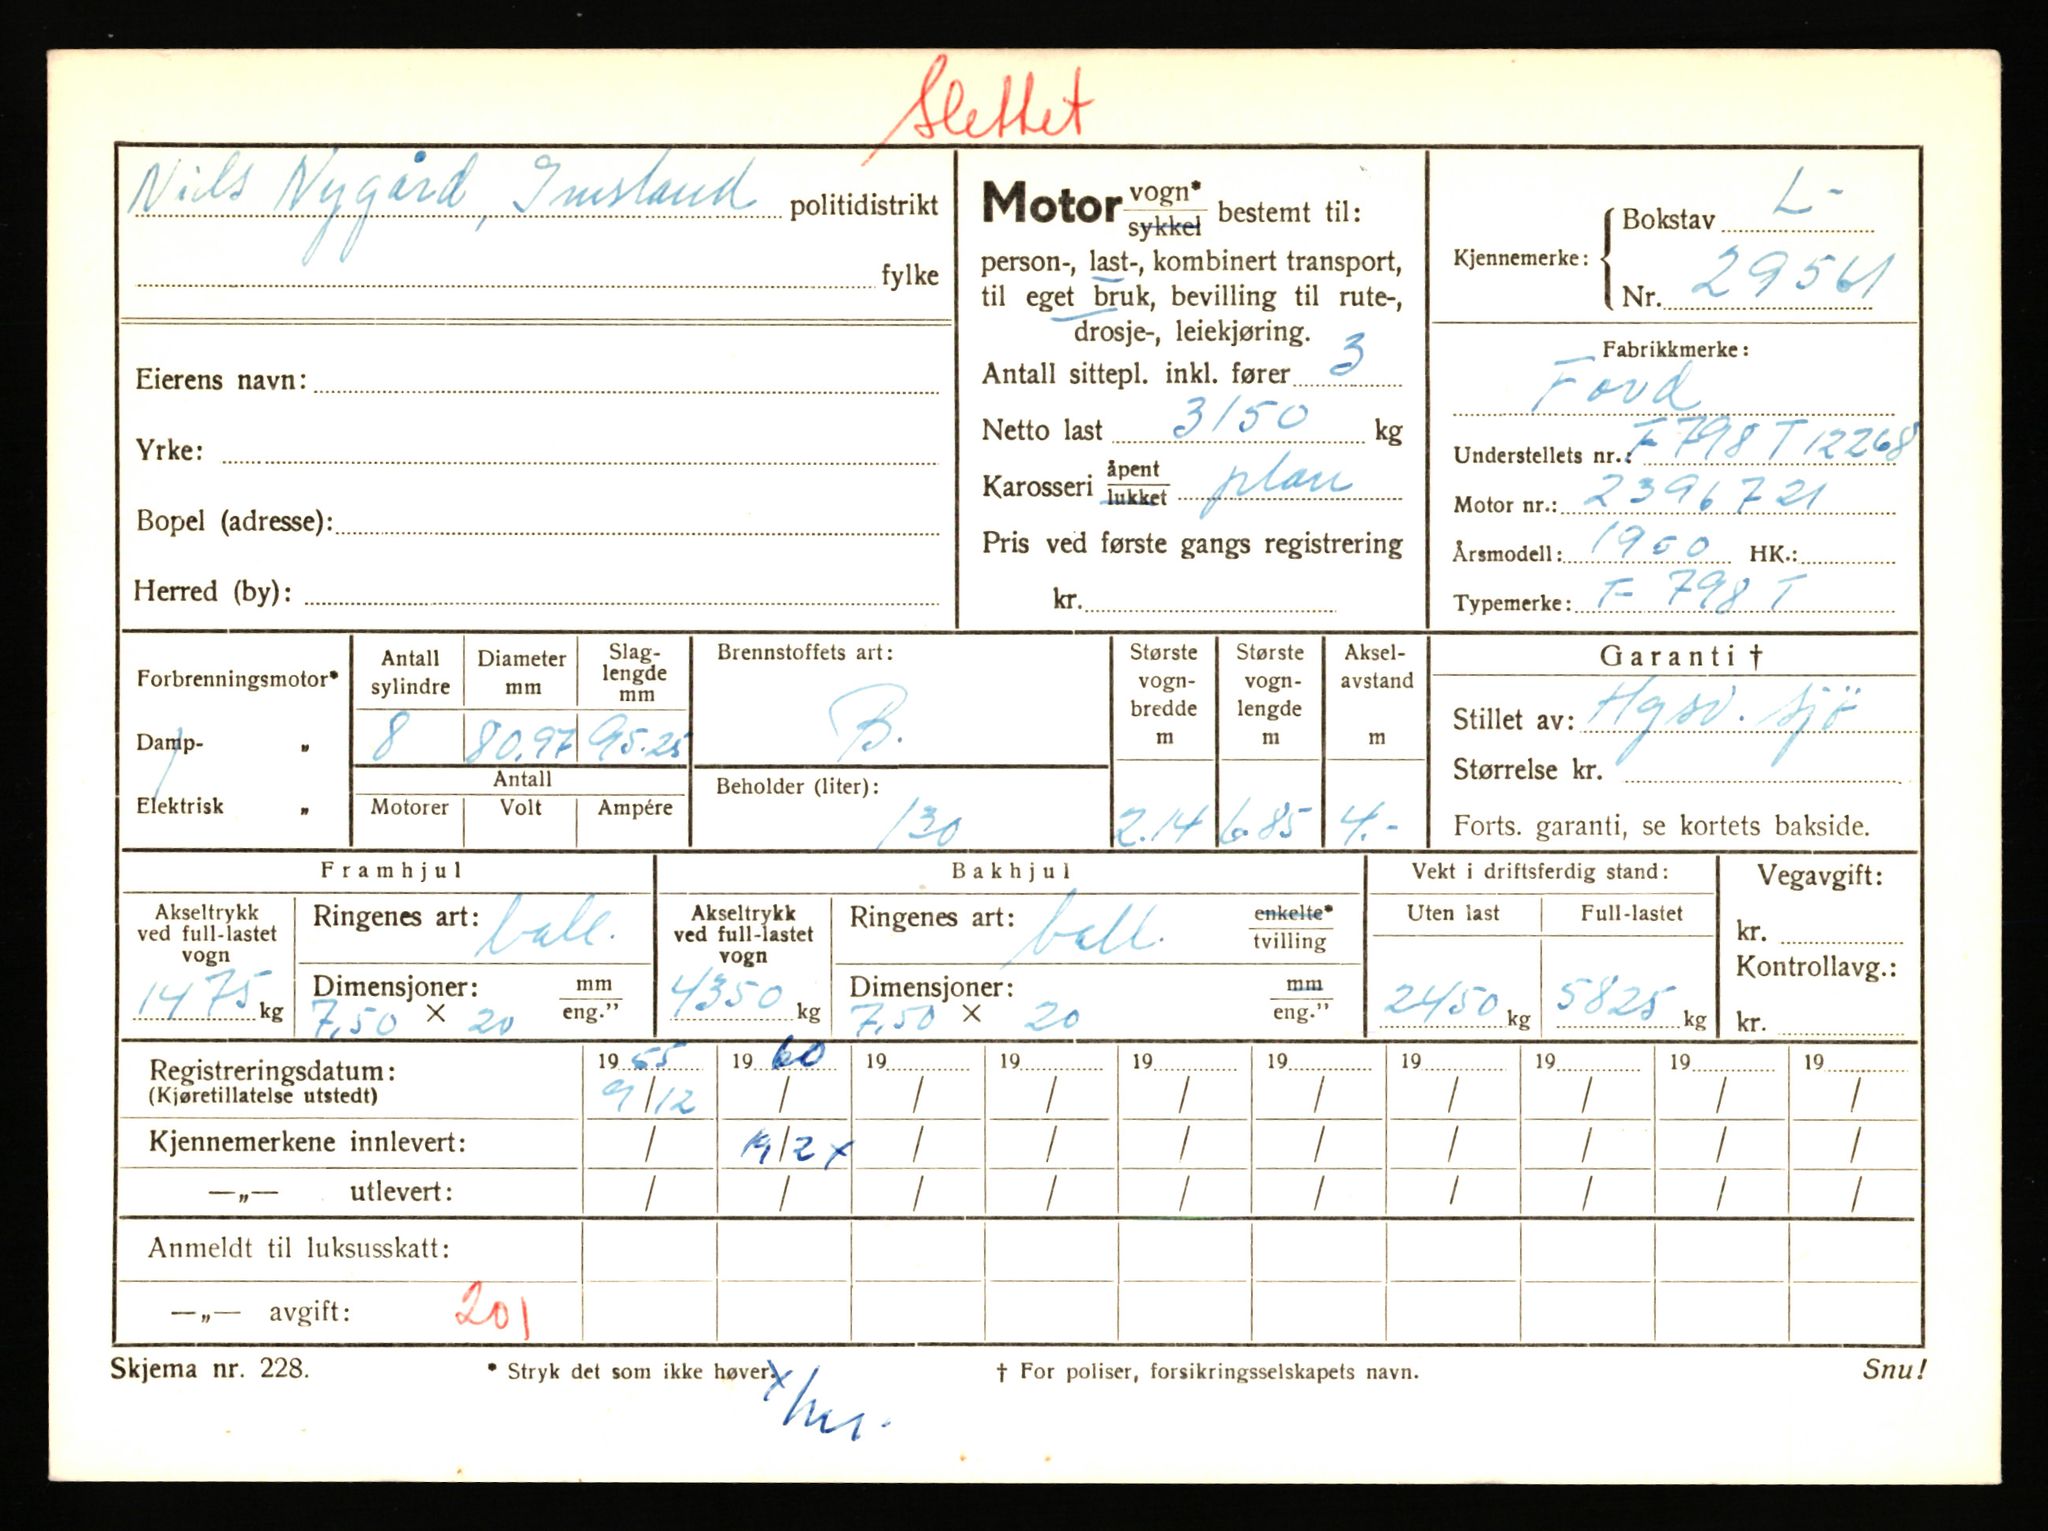 Slettet
Niels Nygård, Imsland politidistrikt
fylke
Eierens navn:
Yrke:
Bopel (adresse):
Herred (by):
Motor vogn* sykkel bestemt til:
person-, last-, kombinert transport,
til eget bruk, bevilling til rute-,
drosje-, leiekjøring.
Antall sittepl. inkl. fører 3
Netto last 3150 kg
Karosseri åpent lukket plan
Pris ved første gangs registrering
kr.
Kjennemerke: Bokstav L-
Nr. 29561
Fabrikkmerke:
Ford
Understellets nr.: F 798 T 12268
Motor nr.: 2396721
Årsmodell: 1950 HK.:
Typemerke: F 798 T
Forbrenningsmotor*
Damp- „
Elektrisk „
Antall sylindre Diameter mm Slag-lengde mm
8 80,97 95.25
Antall
Motorer Volt Ampére
Brennstoffets art:
B.
Beholder (liter):
130
Største vogn-bredde m
2.14
Største vogn-lengde m
6.85
Aksel-avstand m
4.-
Garanti †
Stillet av: Hgsd. Sjö
Størrelse kr.
Forts. garanti, se kortets bakside.
Framhjul
Akseltrykk ved full-lastet vogn
1475 kg
Ringenes art: ball.
Dimensjoner: mm eng.”
7,50 × 20
Bakhjul
Akseltrykk ved full-lastet vogn
4350 kg
Ringenes art: ball. enkelte* tvilling
Dimensjoner: mm eng.”
7,50 × 20
Vekt i driftsferdig stand:
Uten last Full-lastet
2450 kg 5825 kg
Vegavgift:
kr.
Kontrollavg.:
kr.
Registreringsdatum: 19 55 19 60 19 19 19 19 19 19 19 19
(Kjøretillatelse utstedt) 9/12 / / / / / / / / /
Kjennemerkene innlevert: / 19/2 x / / / / / / / /
—„— utlevert: / / / / / / / / / /
Anmeldt til luksusskatt:
—„— avgift: 201
Skjema nr. 228. * Stryk det som ikke høver. † For poliser, forsikringsselskapets navn. Snu!
x